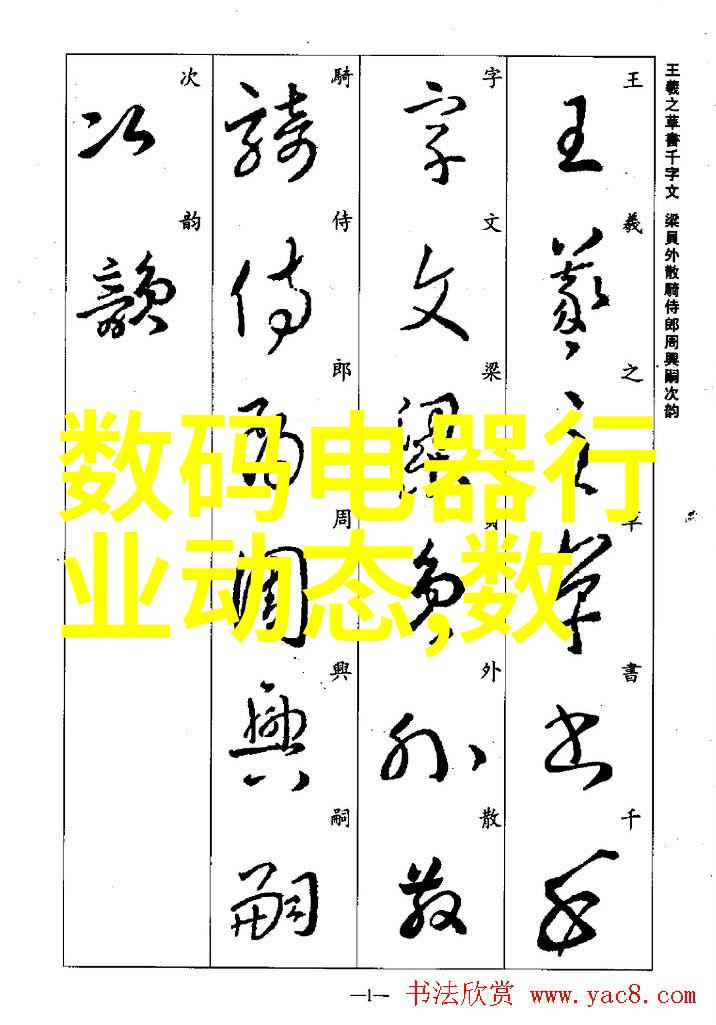 王羲之草書千字文 梁員外散騎侍郎周興嗣次韵
王羲之草書千
字文梁員外散
騎侍郎周興嗣
次韵
数码电器行
业动态,数
—1—
书法欣赏 www.yac8.com